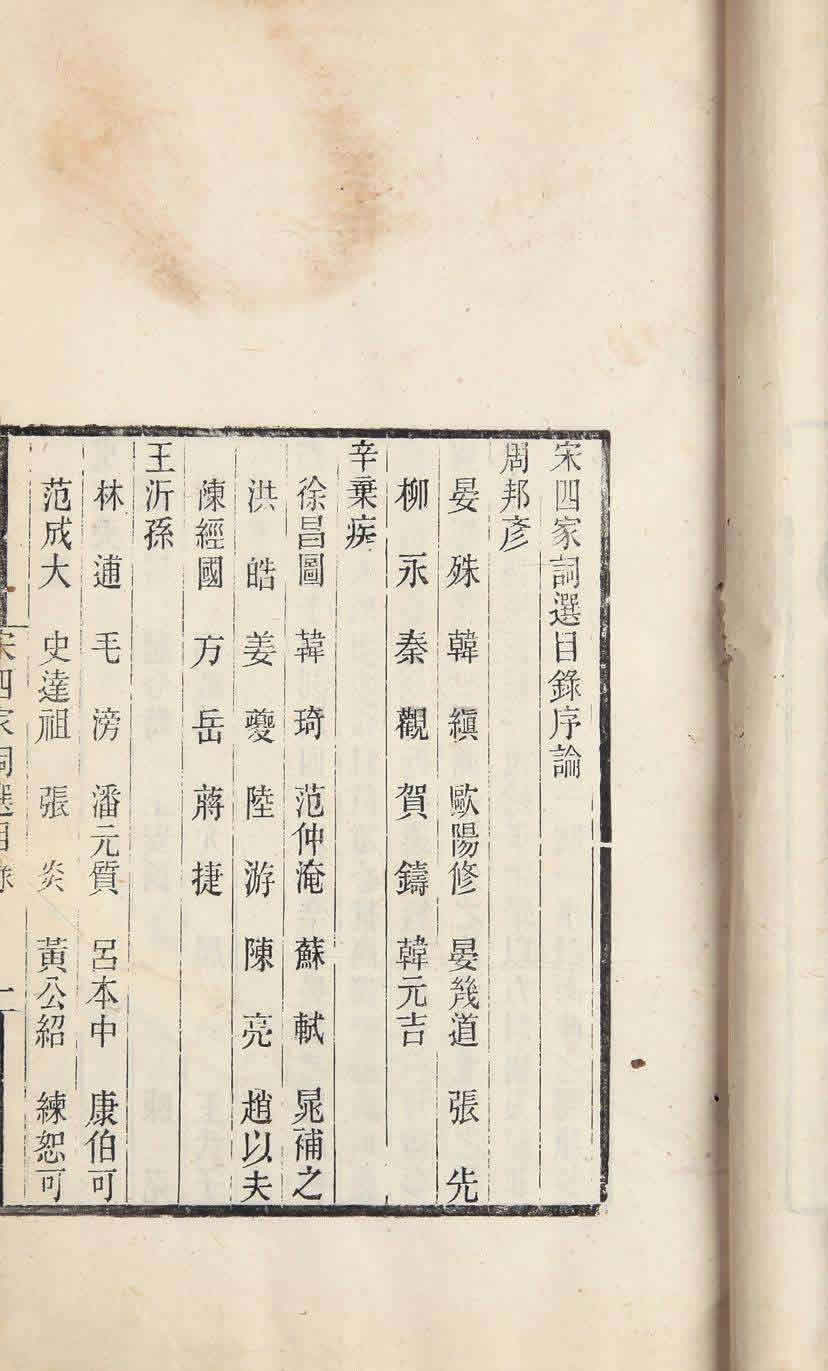 宋四家詞選目錄序論
周邦彥
晏殊 韓縝 歐陽修 晏幾道 張先
柳永 秦觀 賀鑄 韓元吉
辛棄疾
徐昌圖 韓琦 范仲淹 蘇軾 晁補之
洪皓 姜夔 陸游 陳亮 趙以夫
陳經國 方岳 蔣捷
王沂孫
林逋 毛滂 潘元質 呂本中 康伯可
范成大 史達祖 張炎 黃公紹 練恕可
宋四家詞選目錄